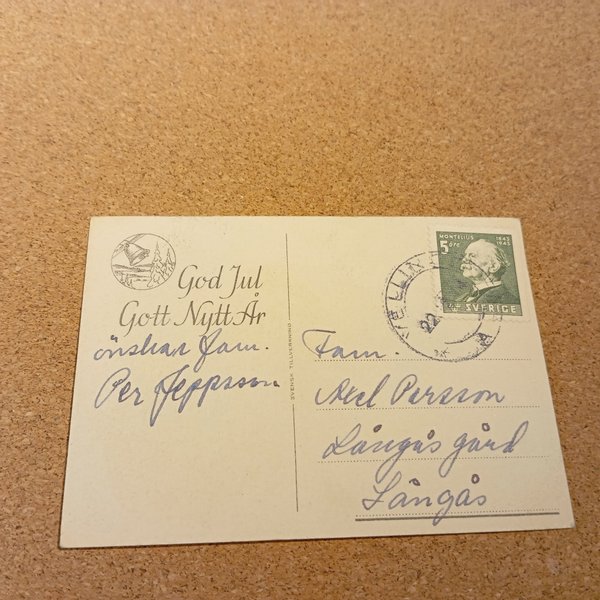 God Jul
Gott Nytt År
önskar fam.
Per Jeppsson
SVENSK TILLVERKNING
MONTELIUS 1843 1943
5 öre
SVERIGE
VELLINGE
22
Fam.
Axel Persson
Långås gård
Långås